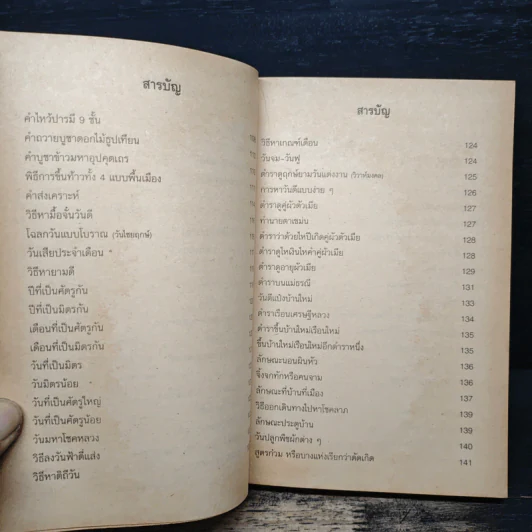 สารบัญ
คำไหว้ปารมี 9 ชั้น
คำถวายบูชาดอกไม้ธูปเทียน
คำบูชาข้าวมหาอุปคุตเถร
พิธีการขึ้นท้าวทั้ง 4 แบบพื้นเมือง
คำส่งเคราะห์
วิธีหามื้อจั๋นวันดี
โฉลกวันแบบโบราณ (วันไชยฤกษ์)
วันเสียประจำเดือน
วิธีหายามดี
ปีที่เป็นศัตรูกัน
ปีที่เป็นมิตรกัน
เดือนที่เป็นศัตรูกัน
เดือนที่เป็นมิตรกัน
วันที่เป็นมิตร
วันมิตรน้อย
วันที่เป็นศัตรูใหญ่
วันที่เป็นศัตรูน้อย
วันมหาโชคหลวง
วิธีลงวันฟ้าตี่แส่ง
วิธีหาดิถีวัน
สารบัญ
วิธีหาเกณฑ์เดือน 124
วันจม-วันฟู 124
ตำราดูฤกษ์ยามวันแต่งงาน (วิวาห์มงคล) 125
การหาวันดีแบบง่าย ๆ 126
ตำราดูคู่ผัวตัวเมีย 127
ทำนายตาเขม่น 127
ตำราว่าด้วยไทปีเกิดคู่ผัวตัวเมีย 128
ตำราดูไหเงินไหคำคู่ผัวเมีย 128
ตำราดูอายุผัวเมีย 129
ตำราบนแม่ธรณี 131
วันดีแป๋งบ้านใหม่ 133
ตำราเรือนเศรษฐีหลวง 134
ตำราขึ้นบ้านใหม่เรือนใหม่ 135
ขึ้นบ้านใหม่เรือนใหม่อีกตำราหนึ่ง 135
ลักษณะนอนผินหัว 136
จิ้งจกทักหรือคนจาม 136
ลักษณะที่บ้านที่เมือง 137
วิธีออกเดินทางไปหาโชคลาภ 139
ลักษณะประตูบ้าน 139
วันปลูกพืชผักต่าง ๆ 140
สูตรก๋วม หรือบางแห่งเรียกว่าตัดเกิด 141